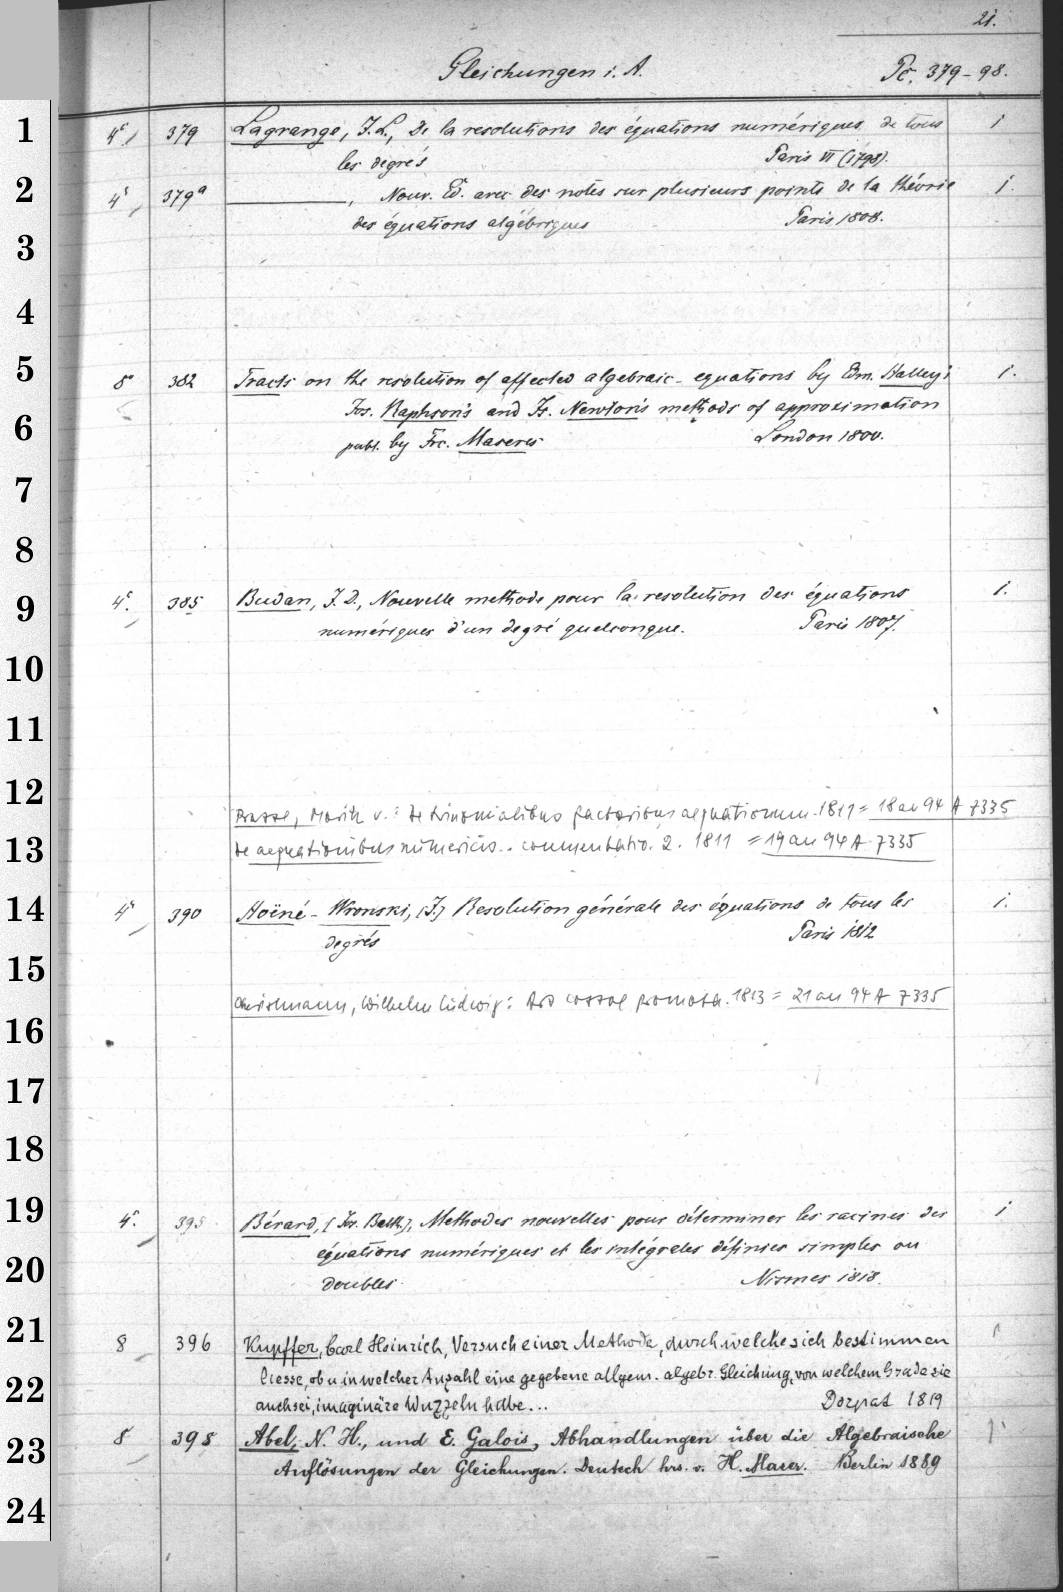 21.
Gleichungen i. A. Pc. 379-98.
1 4° 379 Lagrange, J. L., De la resolutions des équations numériques de tous i
les degrés Paris VI (1798).
2 4° 379a ———, Nouv. Ed. avec des notes sur plusieurs points de la théorie i.
des équations algébriques Paris 1808.
3
4
5 8° 382 Tracts on the resolution of affected algebraic equations by Edm. Halley's i.
6 Jos. Raphson's and Is. Newton's methods of approximation
publ. by Frc. Maseres London 1800.
7
8
9 4°. 385 Budan, F. D., Nouvelle methode pour la resolution des équations i.
numériques d'un degré quelconque. Paris 1807.
10
11
12 Prasse, Moritz v.: De trinomialibus factoribus aequationum. 1811 = 18 an 94 A 7335
13 De aequationibus numericis.. commentatio. 2. 1811 = 19 an 94 A 7335
14 4° 390 Hoëné-Wronski, (J.) Resolution générale des équations de tous les i.
degrés Paris 1812
15
Christmann, Wilhelm Ludwig: Ars cossae promota. 1813 = 21 an 94 A 7335
16
17
18
19 4°. 395 Bérard, (Jos. Balth.), Methodes nouvelles pour déterminer les racines des i
équations numériques et les intégrales définies simples ou
20 doubles. Nismes 1818.
21 8 396 Kupffer, Carl Heinrich, Versuch einer Methode, durch welche sich bestimmen
22 liesse, ob u in welcher Anzahl eine gegebene allgem. algebr. Gleichung, von welchem Grade sie
auch sei, imaginäre Wurzeln habe... Dorpat 1819
23 8° 398 Abel, N. H., und E. Galois, Abhandlungen über die Algebraische
Auflösungen der Gleichungen. Deutsch hrs. v. H. Maser. Berlin 1889
24